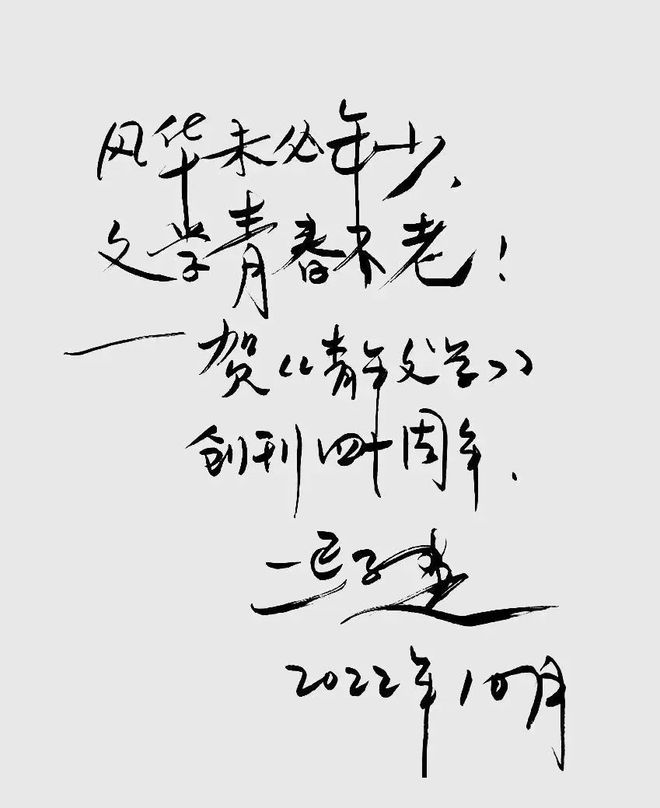 风华未必年少，
文学青春不老！
——贺《青年文学》
创刊四十周年.
迟子建
2022年10月